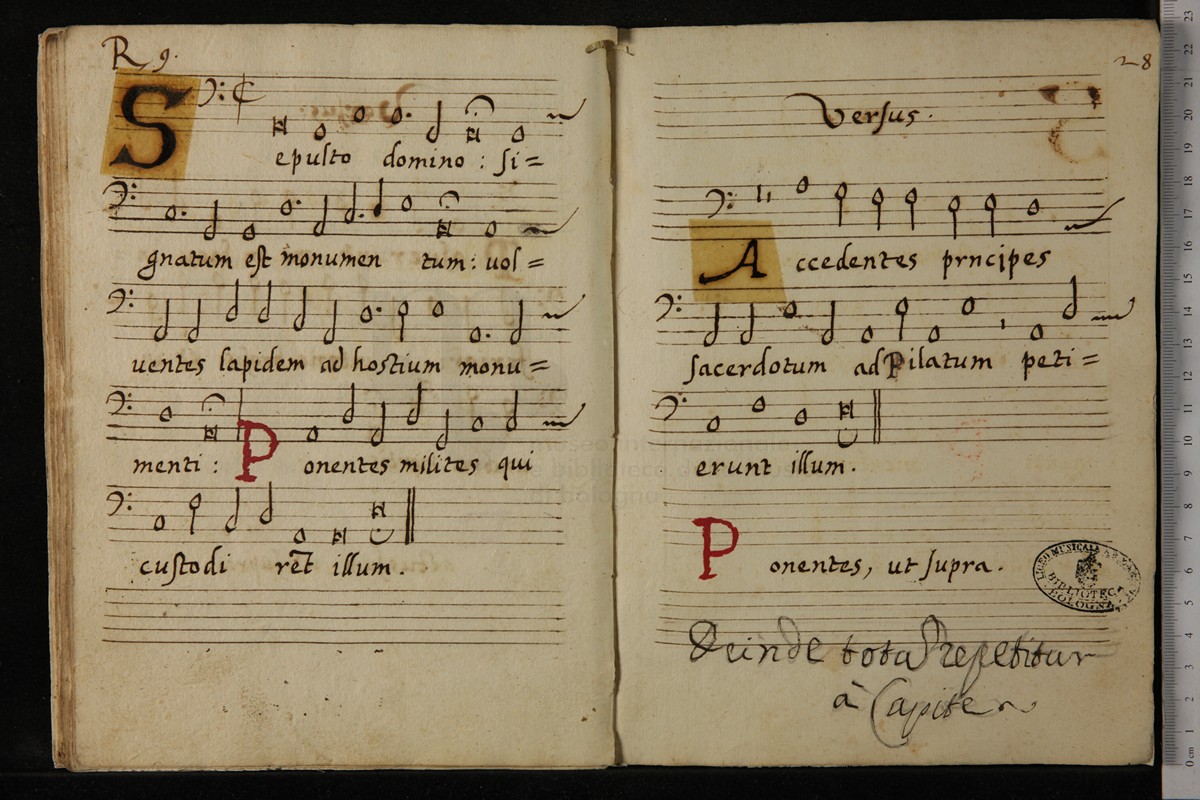 R 9.
Sepulto domino : si=
gnatum est monumen tum : uol=
uentes lapidem ad hostium monu=
menti : Ponentes milites qui
custodi rēt illum.
28
Versus.
Accedentes prncipes
sacerdotum ad Pilatum peti=
erunt illum.
Ponentes, ut supra.
Deinde tota Repetitur
à Capite
LICEO MUSICALE
BIBLIOTECA
BOLOGNA